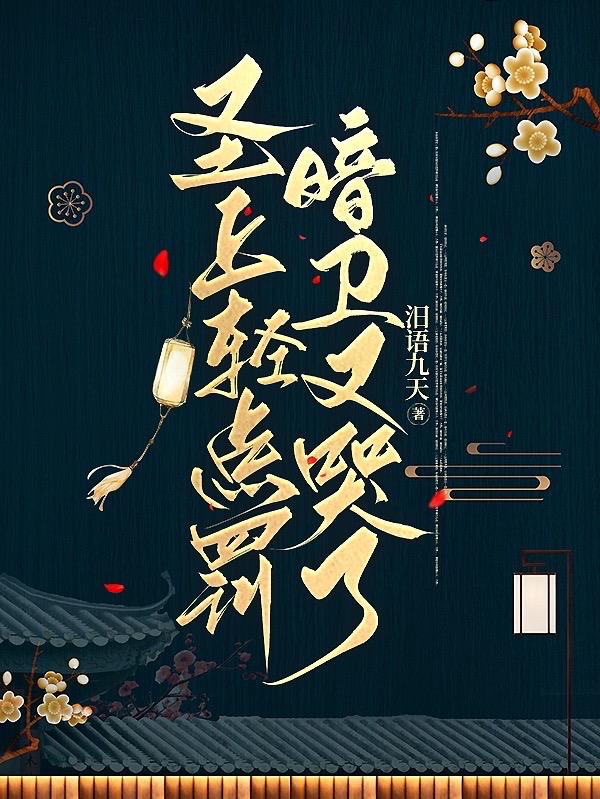 圣上轻点罚
暗卫又哭了
汩语九天 著